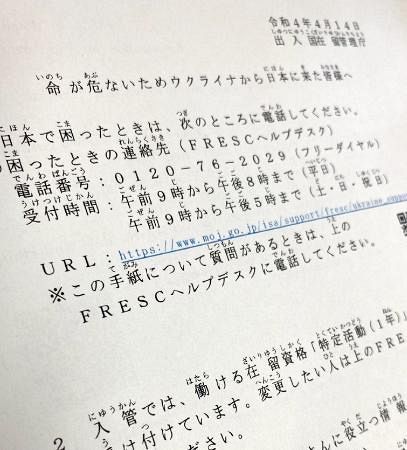 令和4年4月14日
出入国在留管理庁
命が危ないためウクライナから日本に来た皆様へ
日本で困ったときは、次のところに電話してください。
の困ったときの連絡先（FRESCヘルプデスク）
電話番号：0120-76-2029（フリーダイヤル）
受付時間：午前9時から午後8時まで（平日）
午前9時から午後5時まで（土・日・祝日）
URL：https://www.moj.go.jp/isa/support/fresc/ukraine_suppor
※この手紙について質問があるときは、上の
FRESCヘルプデスクに電話してください。
2 入管では、働ける在留資格「特定活動（1年）」
け付けています。変更したい人は上のFRE
ださい。
に役立つ情報